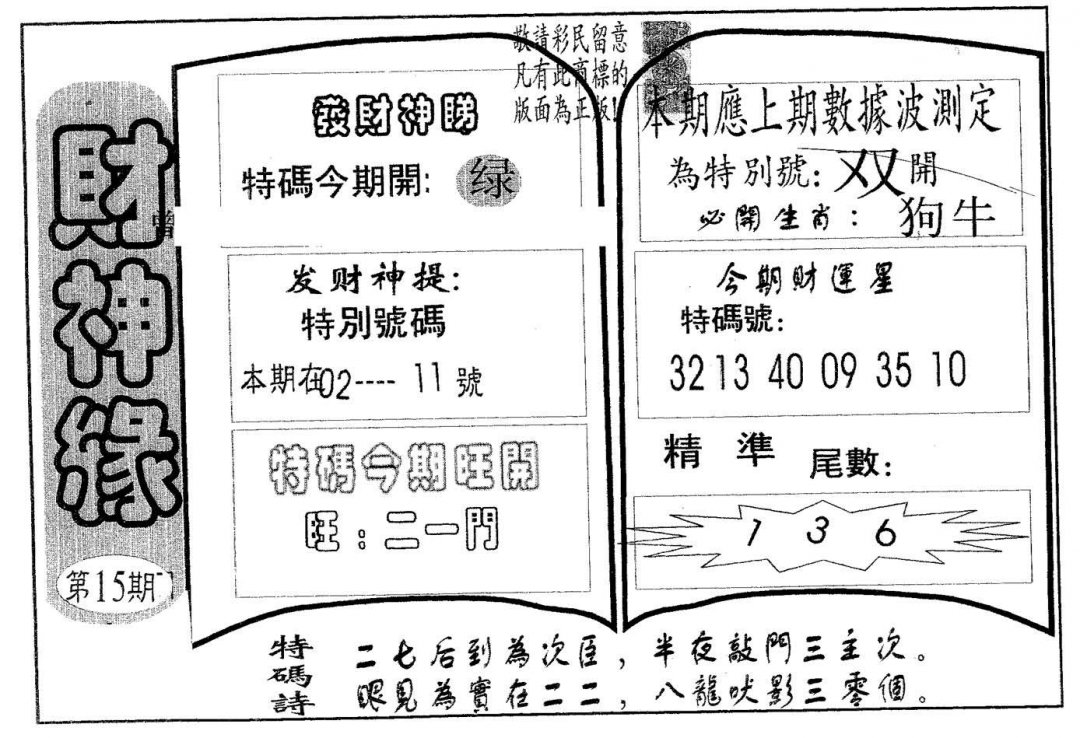 財神緣
第15期
敬請彩民留意
凡有此商標的
版面為正版!
發財神睇
特碼今期開: 绿
曾
发财神提:
特別號碼
本期在02---- 11 號
特碼今期旺開
旺:二一門
本期應上期數據波測定
為特別號: 双開
必開生肖: 狗牛
今期財運星
特碼號:
32 13 40 09 35 10
精 準 尾數:
1 3 6
特碼詩
二七后到為次臣,半夜敲門三主次。
眼見為實在二二,八龍吠影三零個。